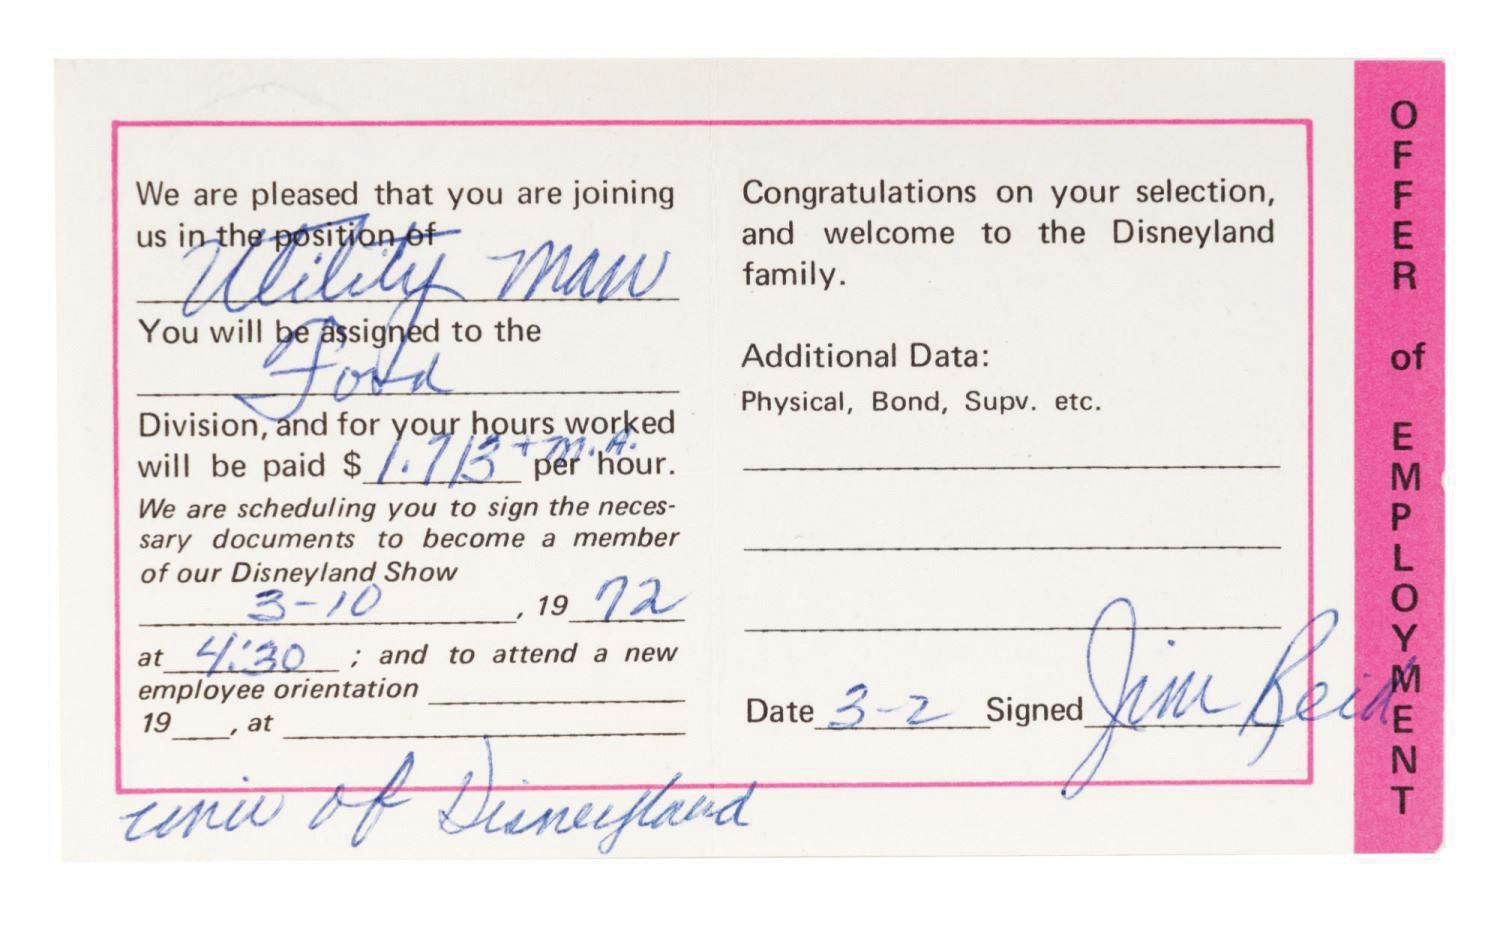 We are pleased that you are joining
us in the position of
Utility Man
You will be assigned to the
Food
Division, and for your hours worked
will be paid $ 1.713 + M.A. per hour.
We are scheduling you to sign the neces-
sary documents to become a member
of our Disneyland Show
3-10, 1972
at 4:30; and to attend a new
employee orientation
19___, at
univ of Disneyland
Congratulations on your selection,
and welcome to the Disneyland
family.
Additional Data:
Physical, Bond, Supv. etc.
Date 3-2 Signed Jim Reid
OFFER of EMPLOYMENT